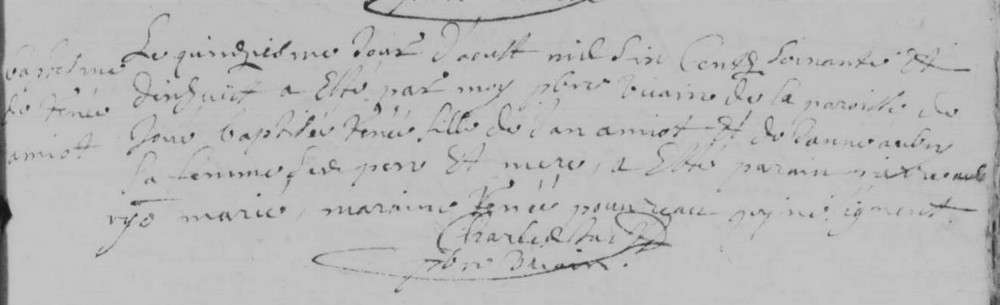 baptesme
de renée
amiot
Le quinziesme Jour d'aoust mil Six Centz Soixante Et
dixhuict a Esté par moy pbre vicaire de la paroisse de
Joue baptisée renée fille de Jan amiot Et de Janne aubry
Sa femme ses pere Et mere, a Esté parain
marie, maraine Renée
Charles
pbre vicaire